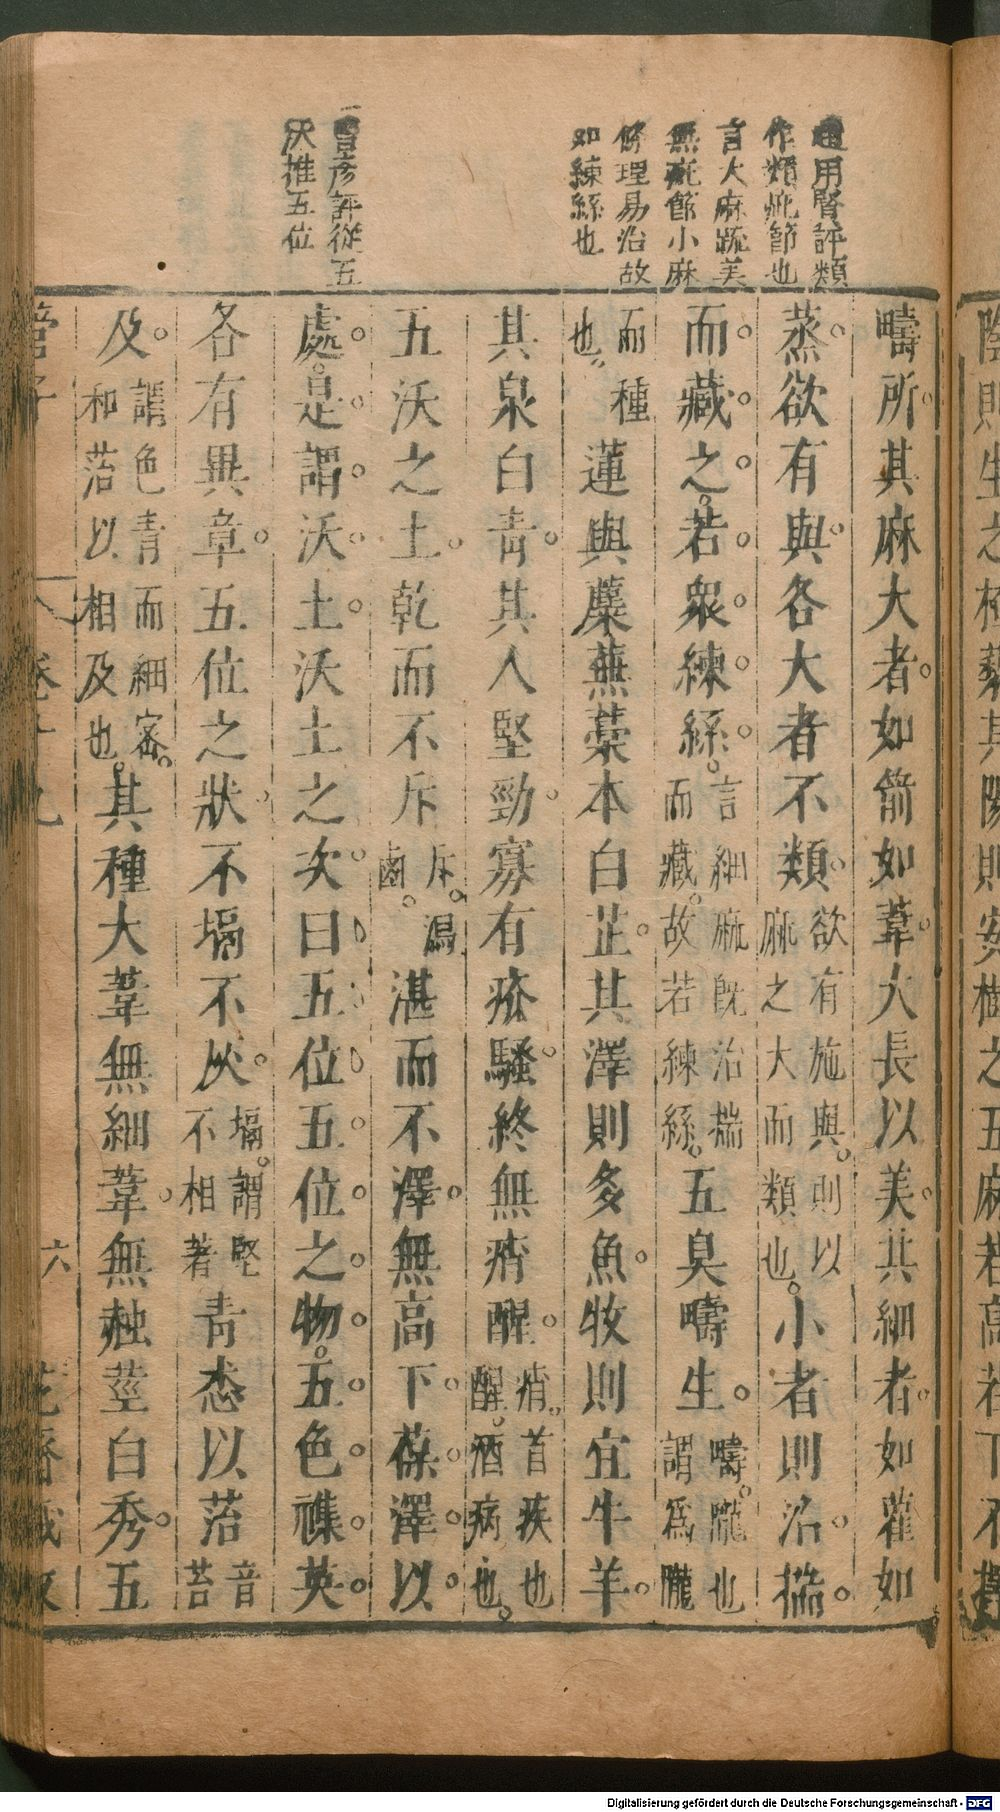 通用賢評類
作纇疵節也
言大麻疏美
無疵節小麻
條理易治故
如練絲也
評從五
沃推五位
疇所其麻大者如箭如葦大長以美其細者如雚如
蒸欲有與各大者不類欲有施與則以麻之大而類也小者則治揣
而藏之若眾練絲言細麻既治揣而藏故若練絲五臭疇生疇隴也謂為隴
而種也蓮與蘪蕪藁本白芷其澤則多魚牧則宜牛羊
其泉白青其人堅勁寡有疥騷終無痟酲痟首疾也酲酒病也
五沃之土乾而不斥斥潟鹵湛而不澤無高下葆澤以
處是謂沃土沃土之次曰五位五位之物五色雜英
各有異章五位之狀不塥不灰塥謂堅不相著青恙以菭音苔
及謂色青而細密和菭以相及也其種大葦無細葦無赨莖白秀五
管子 卷十九 六 花齋藏板
陰則生之楂藜其陽則安樹之五麻若高若下不
Digitalisierung gefördert durch die Deutsche Forschungsgemeinschaft - DFG